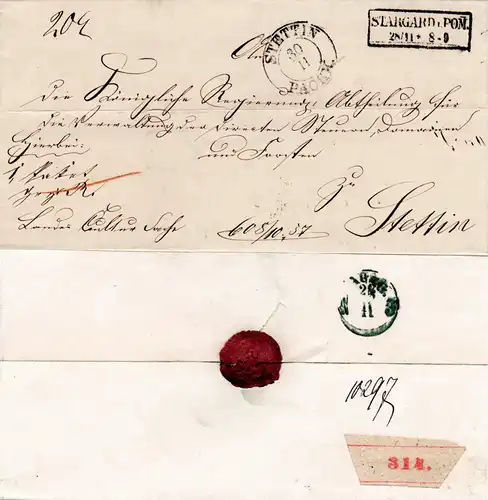 STETTIN
30
11
PACKK.
STARGARD i. POM.
28/11 * 8-9
An
Die Königliche Regierung, Abtheilung für
die Verwaltung der directen Steuern, Domainen
und Forsten
Hierbei:
1 Paket
zu
Landes Cultur Sache
Stettin
28
11
10297
314.